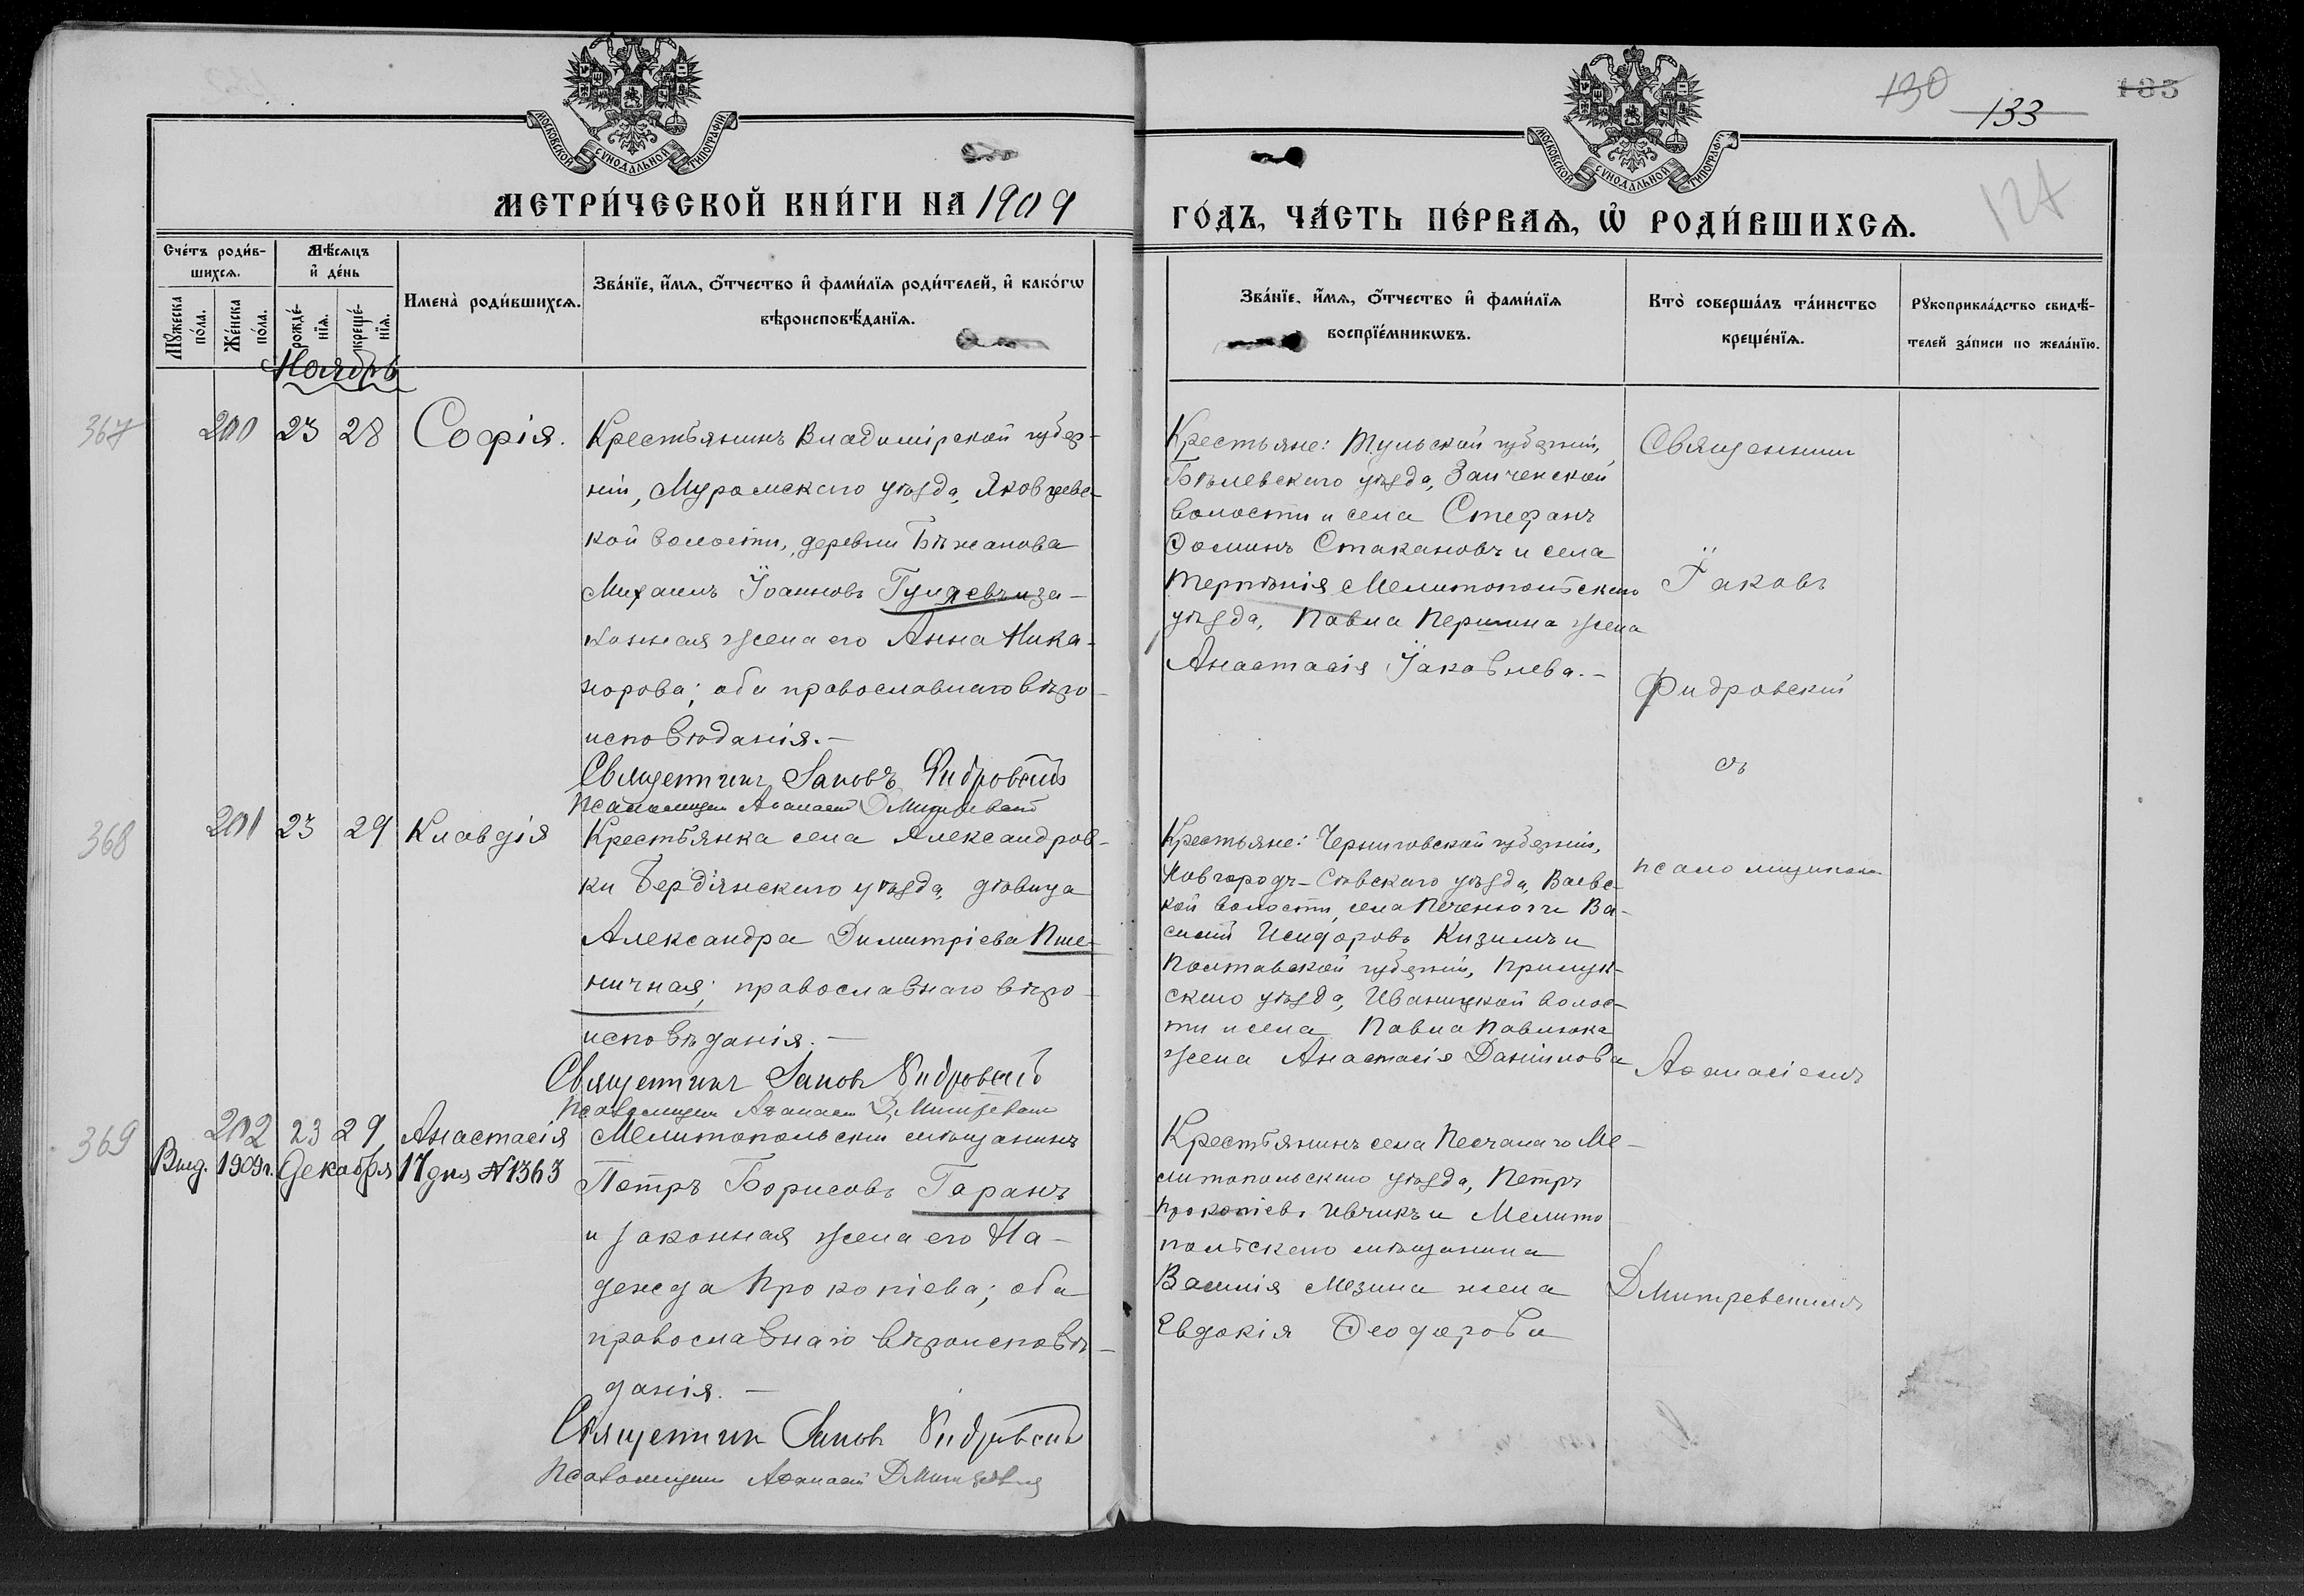 130
133
135
124
МОСКОВСКОЙ СѴНОДАЛЬНОЙ ТИПОГРАФІИ
МОСКОВСКОЙ СѴНОДАЛЬНОЙ ТИПОГРАФІИ
МЕТРИ́ЧЕСКОЙ КНИ́ГИ НА 1909
ГО́ДЪ, ЧА́СТЬ ПЕ́РВАѦ, Ѡ҆ РОДИ́ВШИХСѦ.
Сче́тъ роди́в-
шихсѧ.
Мѣ́сѧцъ
и҆ де́нь
Мꙋ́жеска
по́ла.
Же́нска
по́ла.
рожде́-
нїѧ.
креще́-
нїѧ.
Имена̀ роди́вшихсѧ.
Зва́нїе, и҆́мѧ, ѻ҆́тчество и҆ фами́лїѧ роди́телей, и҆ како́гѡ
вѣроисповѣ́данїѧ.
Зва́нїе, и҆́мѧ, ѻ҆́тчество и҆ фами́лїѧ
воспрїе́мникѡвъ.
Кто̀ соверша́лъ та́инство
креще́нїѧ.
Рꙋкоприкла́дство свидѣ́-
телей за́писи по жела́нїю.
Ноябрь
367
200 23 28 Софія.
Крестьянинъ Владимірской губер-
ніи, Муромскаго уѣзда, Яковцевс-
кой волости, деревни Бѣжанова
Михаилъ Іоанновъ Гуляевъ и за-
конная жена его Анна Ника-
норова; оба православнаго вѣро-
исповѣданія.-
Священникъ Іаковъ Фидровскій
Псаломщикъ Аѳанасій Дмитревскій
Крестьяне: Тульской губерніи,
Бѣлевскаго уѣзда, Заиченской
волости и села Стефанъ
Ѳоминъ Стакановъ и села
Терпѣнія Мелитопольскаго
уѣзда, Павла Першина жена
Анастасія Іаковлева.-
Священникъ
Іаковъ
Фидровскій
съ
псаломщикомъ
Аѳанасіемъ
Дмитревскимъ
368
201 23 29 Клавдія
Крестьянка села Александров-
ки Бердянскаго уѣзда, дѣвица
Александра Димитріева Пше-
ничная; православнаго вѣро-
исповѣданія.-
Священникъ Іаковъ Фидровскій
Псаломщикъ Аѳанасій Дмитревскій
Крестьяне: Черниговской губерніи,
Новгородъ-Сѣвскаго уѣзда, Ваевс-
кой волости, села Печенюги Ва-
силій Исидоровъ Кизимъ и
Полтавской губерніи, Прилук-
скаго уѣзда, Иваницкой волос-
ти и села Павла Павлюка
жена Анастасія Даніилова
369
202 23 29 Анастасія
Выд. 1909 г. Декабря 17 дня № 1363
Мелитопольскій мѣщанинъ
Петръ Борисовъ Гаранъ
и законная жена его На-
дежда Прокопіева; оба
православнаго вѣроисповѣ-
данія.-
Священникъ Іаковъ Фидровскій
Псаломщикъ Аѳанасій Дмитревскій
Крестьянинъ села Песчанаго Ме-
литопольскаго уѣзда, Петръ
Прокопіевъ Ивчикъ и Мелито
польскаго мѣщанина
Василія Мезина жена
Евдокія Ѳеодорова